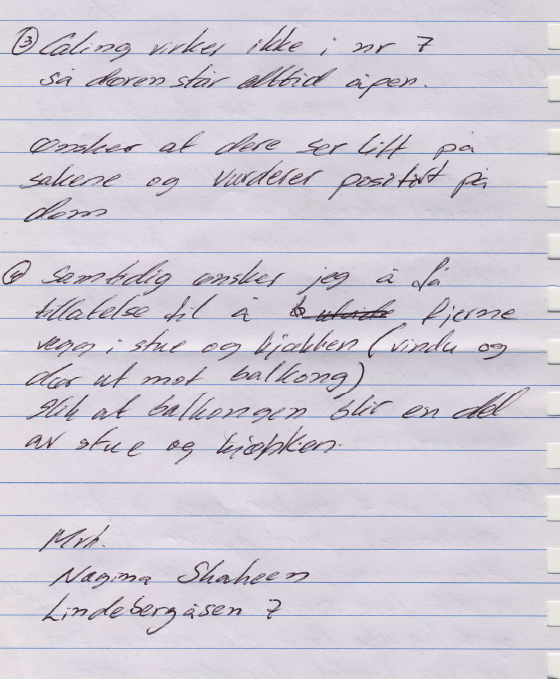 ③ Caling virker ikke i nr 7
så døren står alltid åpen.
Ønsker at dere ser litt på
sakene og vurderer positivt på
dem
④ Samtidig ønsker jeg å få
tillatelse til å utvide fjerne
vegg i stue og kjøkken (vindu og
dør ut mot balkong)
slik at balkongen blir en del
av stue og kjøkken.
Mvh.
Nagina Shaheen
Lindebergåsen 7